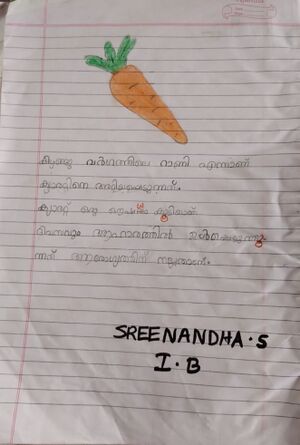 കിഴങ്ങു വർഗത്തിലെ റാണി എന്നാണ്
ക്യാരറ്റിനെ അറിയപ്പെടുന്നത്.
ക്യാരറ്റ് ഒരു ഔഷധം കൂടിയാണ്.
ദിവസവും ആഹാരത്തിൽ ഉൾപ്പെടുത്തു
ന്നത് ആരോഗ്യത്തിന് നല്ലതാണ്.
SREENANDHA.S
I.B